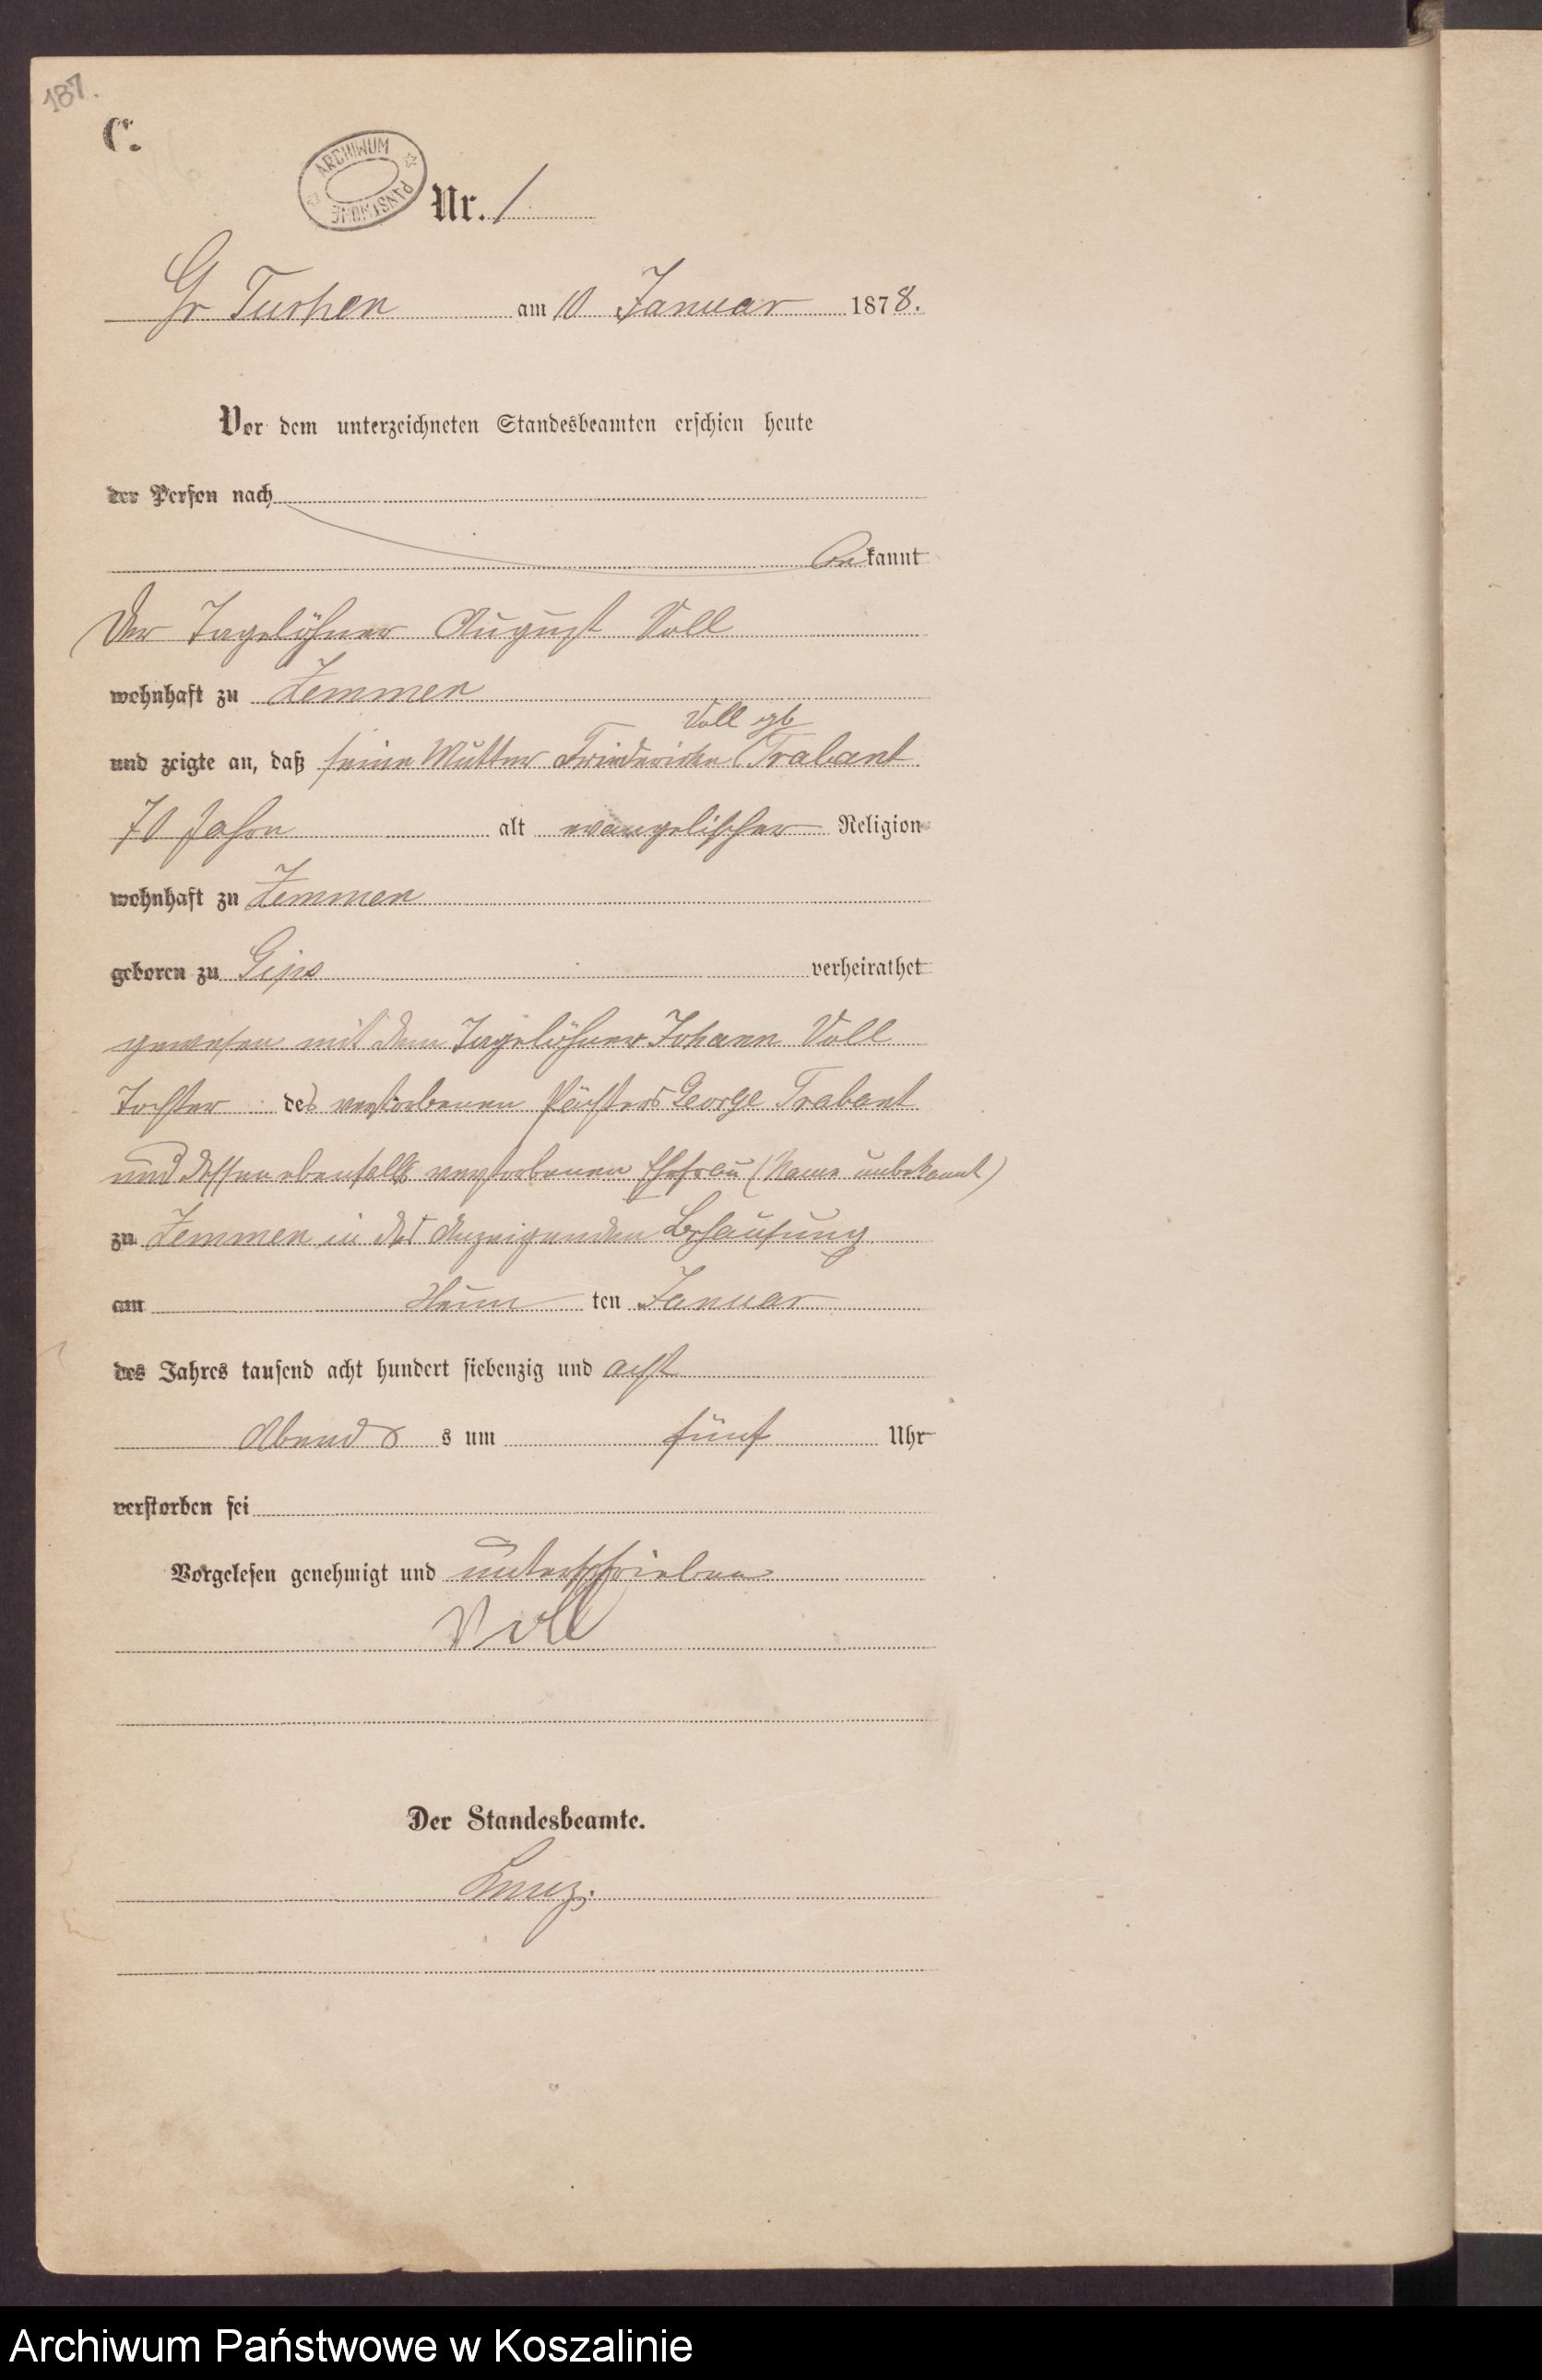 187.
C.
ARCHIWUM PAŃSTWOWE
Nr. 1
Gr Tuchen am 10 Januar 1878.
Vor dem unterzeichneten Standesbeamten erschien heute
der Person nach
bekannt
der Tagelöhner August Voll
wohnhaft zu Zemmen
Voll gb
und zeigte an, daß seine Mutter Friedericke Trabant
70 Jahre alt evangelischer Religion
wohnhaft zu Zemmen
geboren zu verheirathet
gewesen mit dem Tagelöhner Johann Voll
Tochter des verstorbenen Pächters George Trabant
und dessen ebenfalls verstorbenen Ehefrau (Name unbekannt)
zu Zemmen in des Anzeigenden Behausung
am Neun ten Januar
des Jahres tausend acht hundert siebenzig und acht
Abends s um fünf Uhr
verstorben sei
Vorgelesen genehmigt und unterschrieben
Voll
Der Standesbeamte.
Archiwum Państwowe w Koszalinie